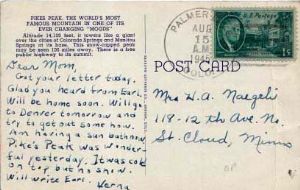 PIKES PEAK, THE WORLD'S MOST
FAMOUS MOUNTAIN IN ONE OF ITS
EVER CHANGING "MOODS"
Altitude 14,110 feet, it towers like a giant
over the cities of Colorado Springs and Manitou
Springs at its base. This snow-capped peak
may be seen 100 miles in clear weather.
Dear Mom,
Got your letter today.
Glad you heard from Earl.
Will be home soon. Will go
to Denver tomorrow and
try to get out some how.
Am having a sun bath now.
Pike's Peak was wonder-
ful yesterday. It was cold
on top but no snow.
Will write Earl.
Verna
PALMER
AUG
15
A.M.
COLO.
U.S. Postage
POST CARD
Mrs H. A. Naegeli
118-12th Ave. No.
St. Cloud, Minn